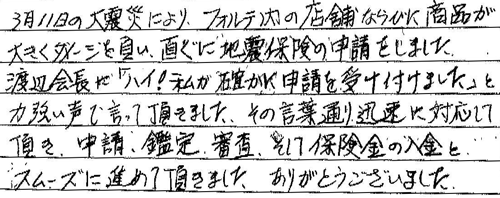 3月11日の大震災により、フォルテ内の店舗ならびに商品が
大きくダメージを負い、直ぐに地震保険の申請をしました。
渡辺会長が「ハイ!私が確かに申請を受け付けました」と
力強い声で言って頂きました、その言葉通り迅速に対応して
頂き、申請、鑑定、審査、そして保険金の入金と、
スムーズに進めて頂きました、ありがとうございました。